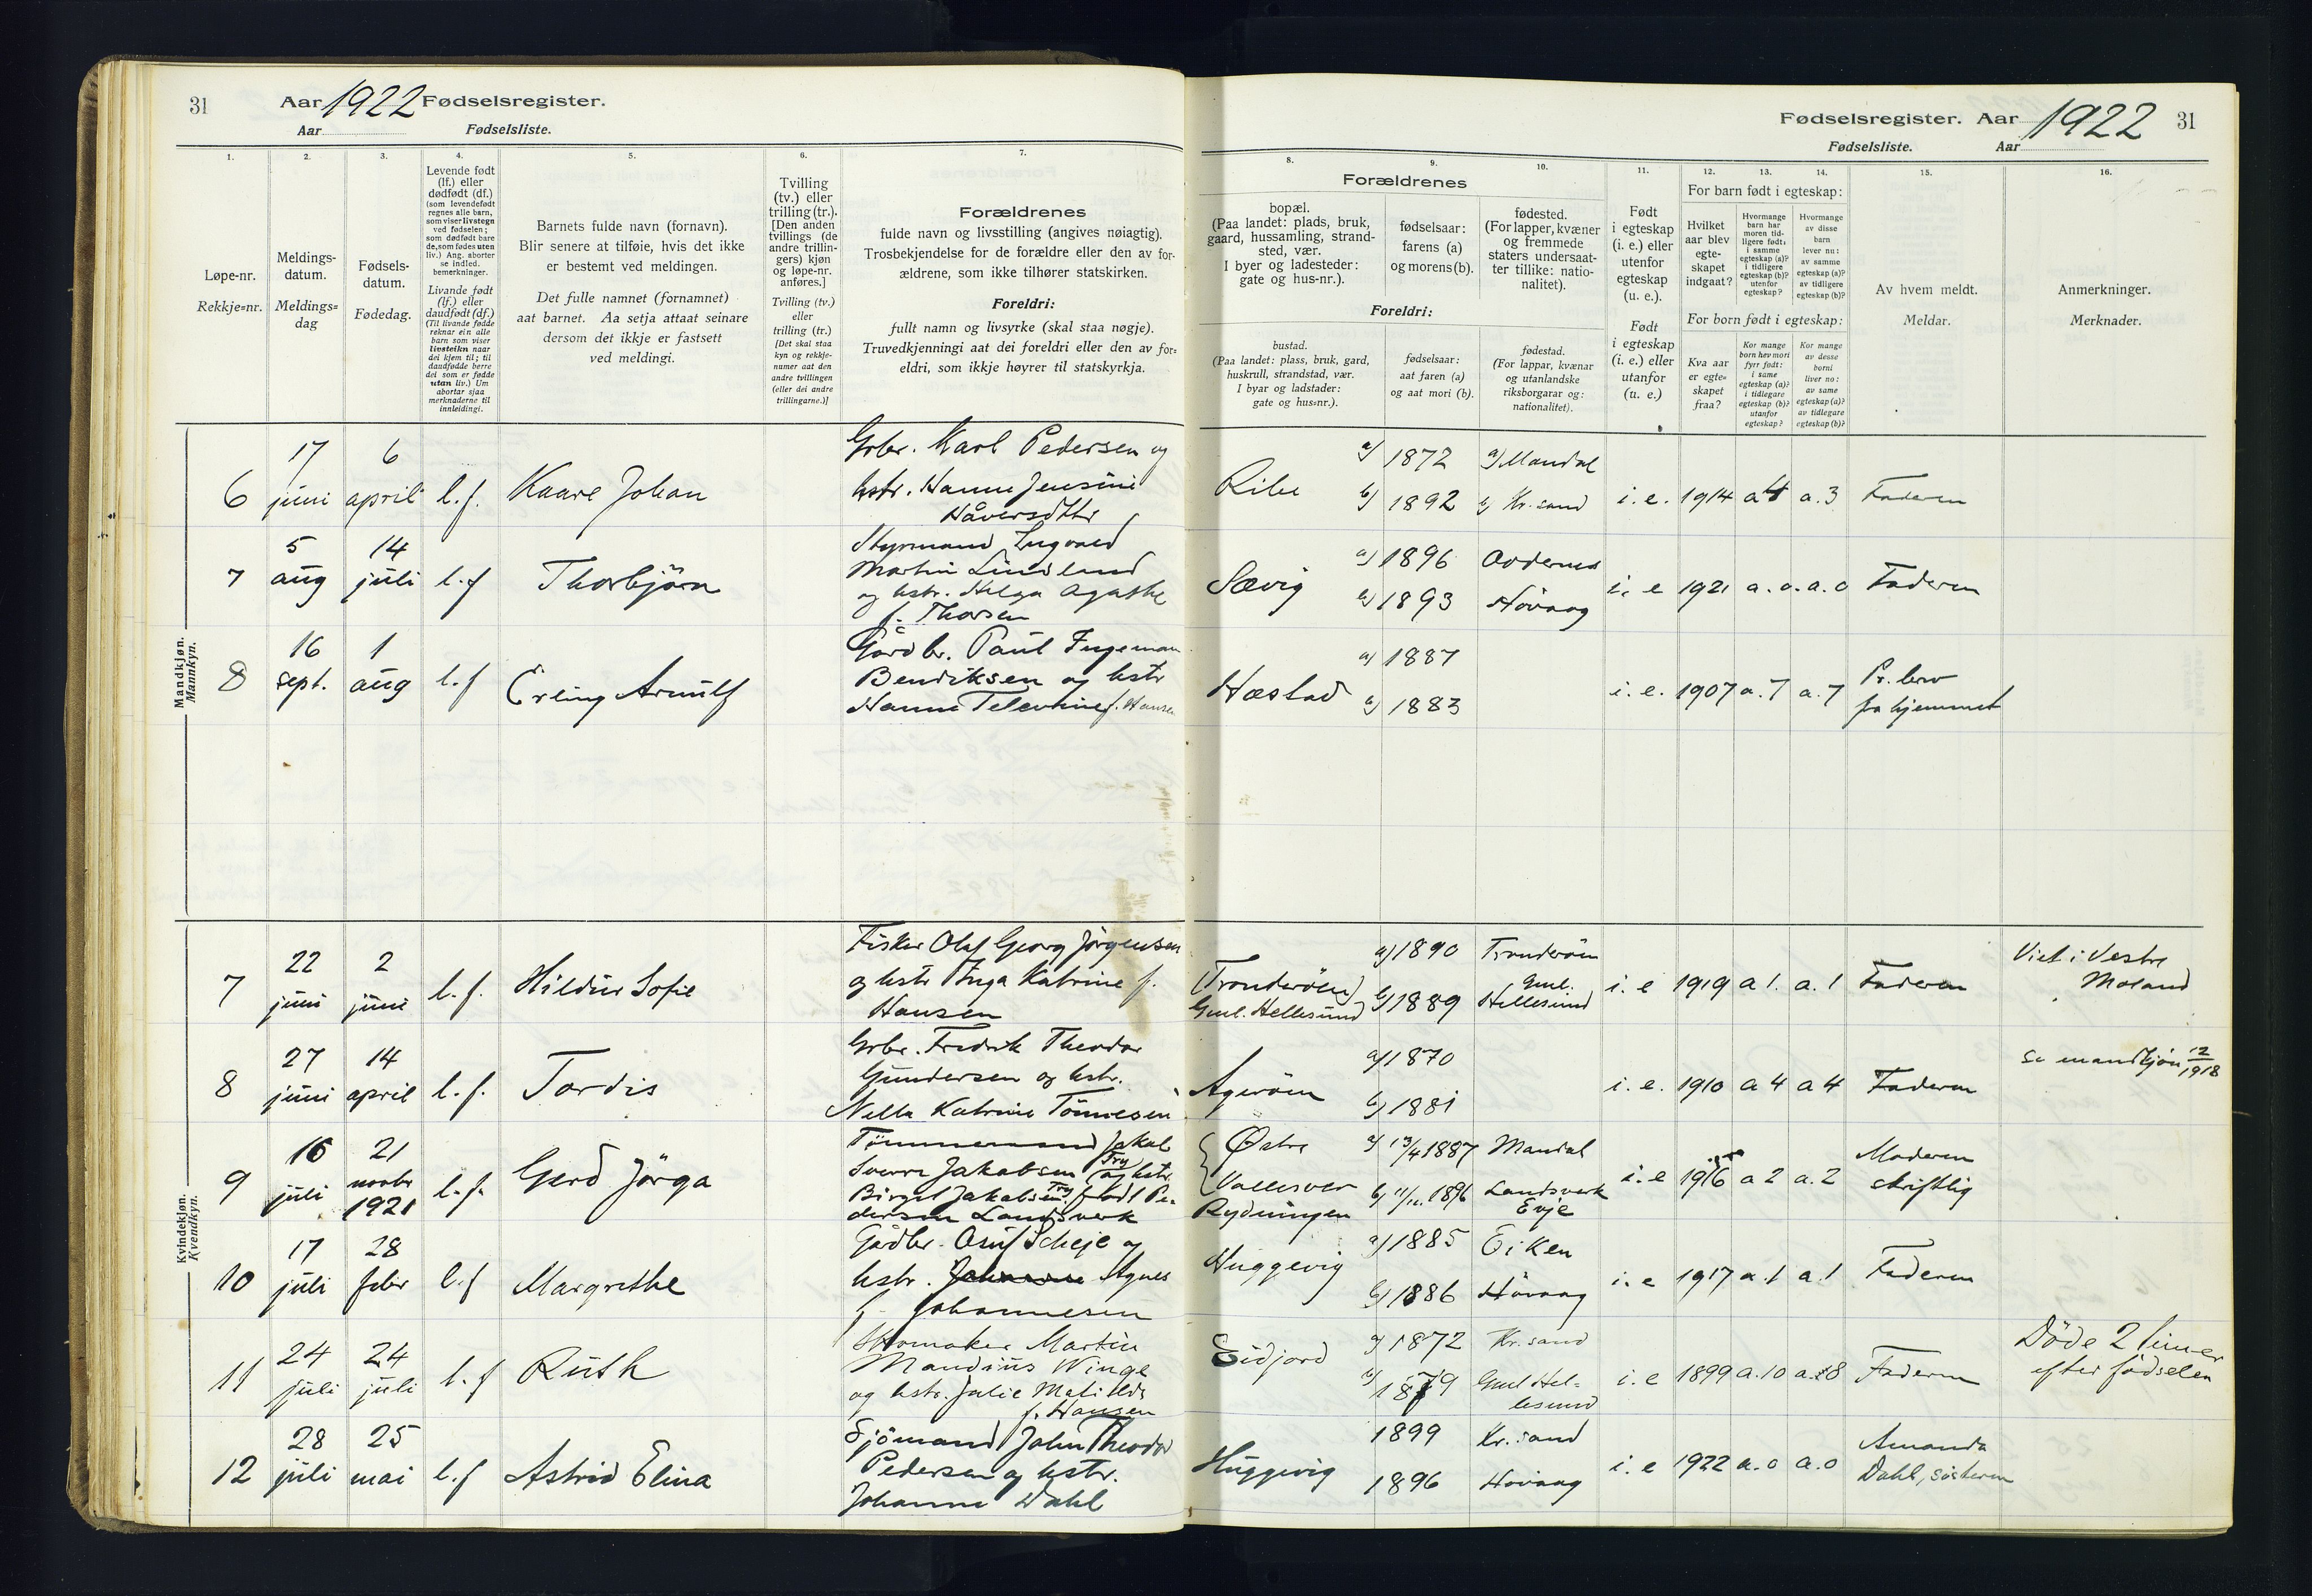 31
Aar 1922 Fødselsregister.
Aar Fødselsliste.
1.
2.
3.
4.
5.
6.
7.
Løpe-nr.
Rekkje=nr.
Meldings-
datum.
Meldings=
dag
Fødsels-
datum.
Fødedag.
Levende født
(lf.) eller
dødfødt (df.)
(som levendefødt
regnes alle barn,
som viser livstegn
ved fødselen;
som dødfødt bare
de, som fødes uten
liv.) Ang. aborter
se indled.
bemerkninger.
Livande født
(lf.) eller
daudfødt (df.)
(Til livande fødde
reknar ein alle
barn som viser
livsteikn naar
dei kjem til; til
daudfødde berre
dei som er fødde
utan liv.) Um
abortar sjaa
merknaderne til
innleidingi.
Barnets fulde navn (fornavn).
Blir senere at tilføie, hvis det ikke
er bestemt ved meldingen.
Det fulle namnet (fornamnet)
aat barnet. Aa setja attaat seinare
dersom det ikkje er fastsett
ved meldingi.
Tvilling
(tv.) eller
trilling (tr.).
[Den anden
tvillings (de
andre trillin-
gers) kjøn
og løpe-nr.
anføres.]
Tvilling (tv.)
eller
trilling (tr.)
[Det skal staa
kyn og rekkje-
numer aat den
andre tvillingen
(eller dei andre
trillingarne.)]
Forældrenes
fulde navn og livsstilling (angives nøiagtig).
Trosbekjendelse for de forældre eller den av for-
ældrene, som ikke tilhører statskirken.
Foreldri:
fullt namn og livsyrke (skal staa nøgje).
Truvedkjenningi aat dei foreldri eller den av for=
eldri, som ikkje høyrer til statskyrkja.
Fødselsregister. Aar 1922 31
Fødselsliste. Aar
8.
9.
10.
11.
12.
13.
14.
15.
16.
Forældrenes
bopæl.
(Paa landet: plads, bruk,
gaard, hussamling, strand-
sted, vær.
I byer og ladesteder:
gate og hus-nr.).
fødselsaar:
farens (a)
og morens (b).
fødested.
(For lapper, kvæner
og fremmede
staters undersaat-
ter tillike: natio-
nalitet).
Foreldri:
bustad.
(Paa landet: plass, bruk, gard,
huskrull, strandstad, vær.
I byar og ladstader:
gate og hus=nr.).
fødselsaar:
aat faren (a)
og aat mori (b).
fødestad.
(For lappar, kvænar
og utanlandske
riksborgarar og:
nationalitet).
Født
i egteskap
(i. e.) eller
utenfor
egteskap
(u. e.).
Født
i egteskap
(i. e.) eller
utanfor
(u. e.)
For barn født i egteskap:
Hvilket
aar blev
egte-
skapet
indgaat?
Hvormange
barn har
moren tid-
ligere født:
i samme
egteskap (a)?
i tidligere
egteskap (b)?
utenfor
egteskap?
Hvormange
av disse
barn
lever nu:
av samme
egteskap (a)?
av tidligere
egteskap (b)?
For born født i egteskap:
Kva aar
er egte=
skapet
fraa?
Kor mange
born hev mori
fyrr født:
i same
egteskap (a)?
i tidlegare
egteskap (b)?
utanfor
egteskap?
Kor mange
av desse
borni
liver no:
av same
egteskap (a)?
av tidlegare
egteskap (b)?
Av hvem meldt.
Meldar.
Anmerkninger.
Merknader.
Mandkjøn.
Mannkyn.
6
17
juni
6
april
l. f.
Kaare Johan
Grbr. Karl Pedersen og
hstr. Hanne Jensine
Håversdttr
Ribe
a) 1872 a) Mandal
b) 1892 b) Kr. sand
i. e. 1914 a 4 a. 3 Faderen
7
5
aug
14
juli
l. f
Thorbjörn
Styrmand Ingvald
Martin Lindland
og hstr. Helga Agathe
f. Thorsen
Sævig
a) 1896 Oddernes
b) 1893 Hövaag
i. e 1921 a. o. a. o Faderen
8
16
sept.
1
aug
l. f
Erling Arnulf
Gårdbr. Paul Ingeman
Bendiksen og hstr
Hanne f. Hansen
Hæstad
a) 1887
b) 1883
i. e. 1907 a. 7 a. 7
Pr. brev
fra hjemmet
Kvindekjøn.
Kvendkyn.
7
22
juni
2
juni
l. f.
Hildur Sofie
Fisker Olaf Georg Jörgensen
og hstr Inga Katrine f.
Hansen
(Tronderöen)
Gml. Hellesund
a) 1890 Tronderöen
b) 1889 Gml.
Hellesund
i. e 1919 a 1. a. 1 Faderen
Viet i Vestre
Moland
8
27
juni
14
april
l. f.
Tordis
Grbr. Fredrik Theodor
Gundersen og hstr.
Nella Katrine Tönnesen
Ageröen
a) 1870
b) 1881
i. e. 1910 a 4 a 4 Faderen
Se mandkjön 12/1918
9
16
juli
21
novbr
1921
l. f.
Gerd Jörga
Tömmermand Jakob
Sverre Jakobsen Try og hstr.
Birgit Jakobsen Try født Pe-
dersen Landsverk
Østre
Vallesver
Rydningen
a) 13/4 1887 Mandal
b) 11/11. 1896 Landsverk
Evje
i. e 1916 a 2 a. 2
Moderen
skriftlig
10
17
juli
28
febr
l. f
Margrethe
Gårdbr. Osuf Skeje og
hstr. Johanne Agnes
f. Johannesen
Huggevig
a) 1885 Eiken
b) 1886 Hövaag
i. e 1917 a. 1 a. 1 Faderen
11
24
juli
24
juli
l. f
Ruth
Skomaker Martin
Mandius Winge
og hstr. Julie Matilde
f. Hansen
Eidjord
a) 1872 Kr. sand
b) 1879 Gml Hel-
lesund
i. e 1899 a. 10 a. 8 Faderen
Döde 2 timer
efter födselen
12
28
juli
25
mai
l. f
Astrid Elina
Sjömand John Theodor
Pedersen og hstr.
Johanne Dahl
Huggevig
1899 Kr. sand
1896 Hövaag
i. e 1922 a. o a. o
Amanda
Dahl, søsteren